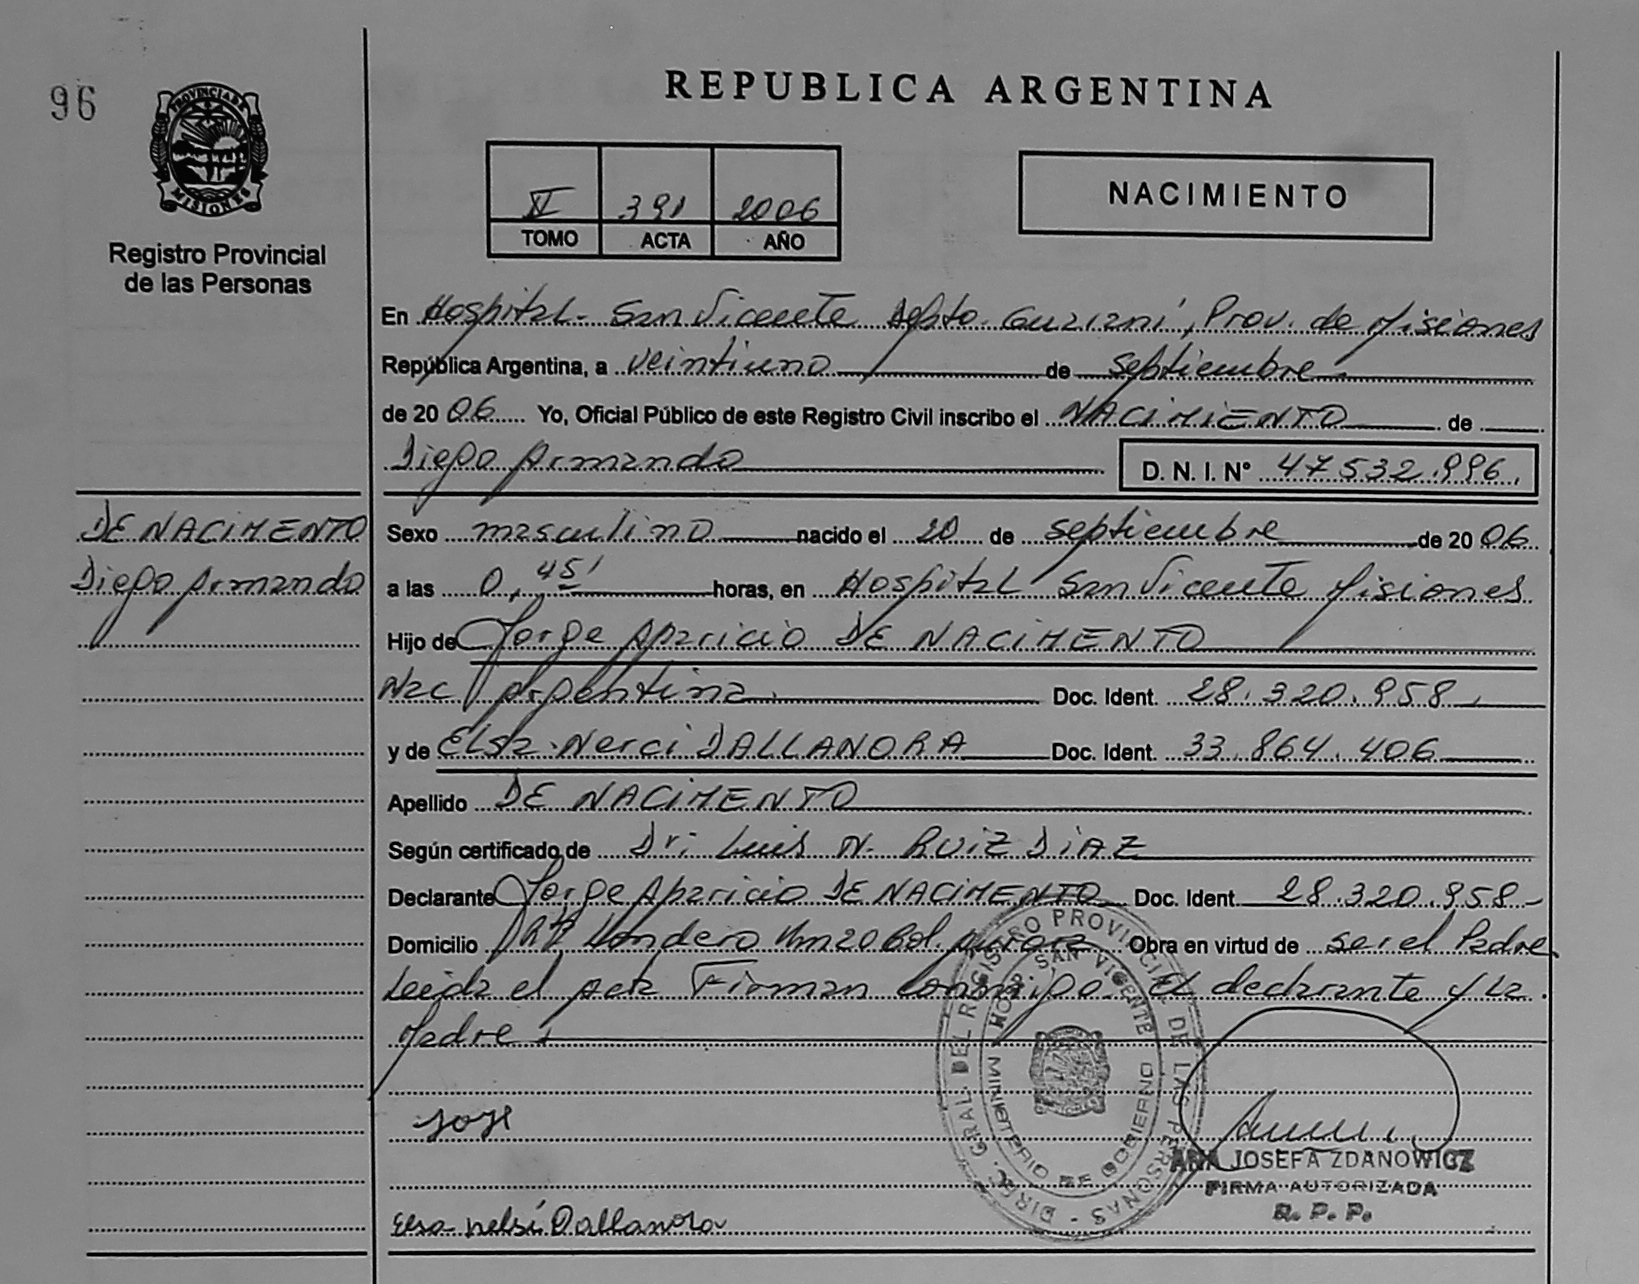 96
PROVINCIA DE
MISIONES
Registro Provincial
de las Personas
REPUBLICA ARGENTINA
391 2006
TOMO ACTA AÑO
NACIMIENTO
En Hospital San Vicente Depto. Guaraní, Prov. de Misiones
República Argentina, a veintiuno de septiembre
de 2006 Yo, Oficial Público de este Registro Civil inscribo el NACIMIENTO de
Diego Armando
D. N. I. N° 47.532.996.
DE NACIMENTO
Diego Armando
Sexo masculino nacido el 20 de septiembre de 2006
a las 0,45' horas, en Hospital San Vicente Misiones
Hijo de Jorge Aparicio DE NACIMENTO
Nac. Argentina. Doc. Ident. 28.320.958
y de Elsa Nerci DALLANORA Doc. Ident. 33.864.406
Apellido DE NACIMENTO
Según certificado de Dr: Luis N. RUIZ DIAZ
Declarante Jorge Aparicio DE NACIMENTO Doc. Ident. 28.320.958
Domicilio Londero Km 20 Obra en virtud de ser el Padre
Leida el acta Firman conmigo. El declarante y La
Madre
DIREC. GRAL. DEL REGISTRO PROVINCIAL DE LAS PERSONAS
HOSP. SAN VICENTE
MINISTERIO DE GOBIERNO
ANA JOSEFA ZDANOWICZ
FIRMA AUTORIZADA
R. P. P.
Elsa nelsi Dallanora